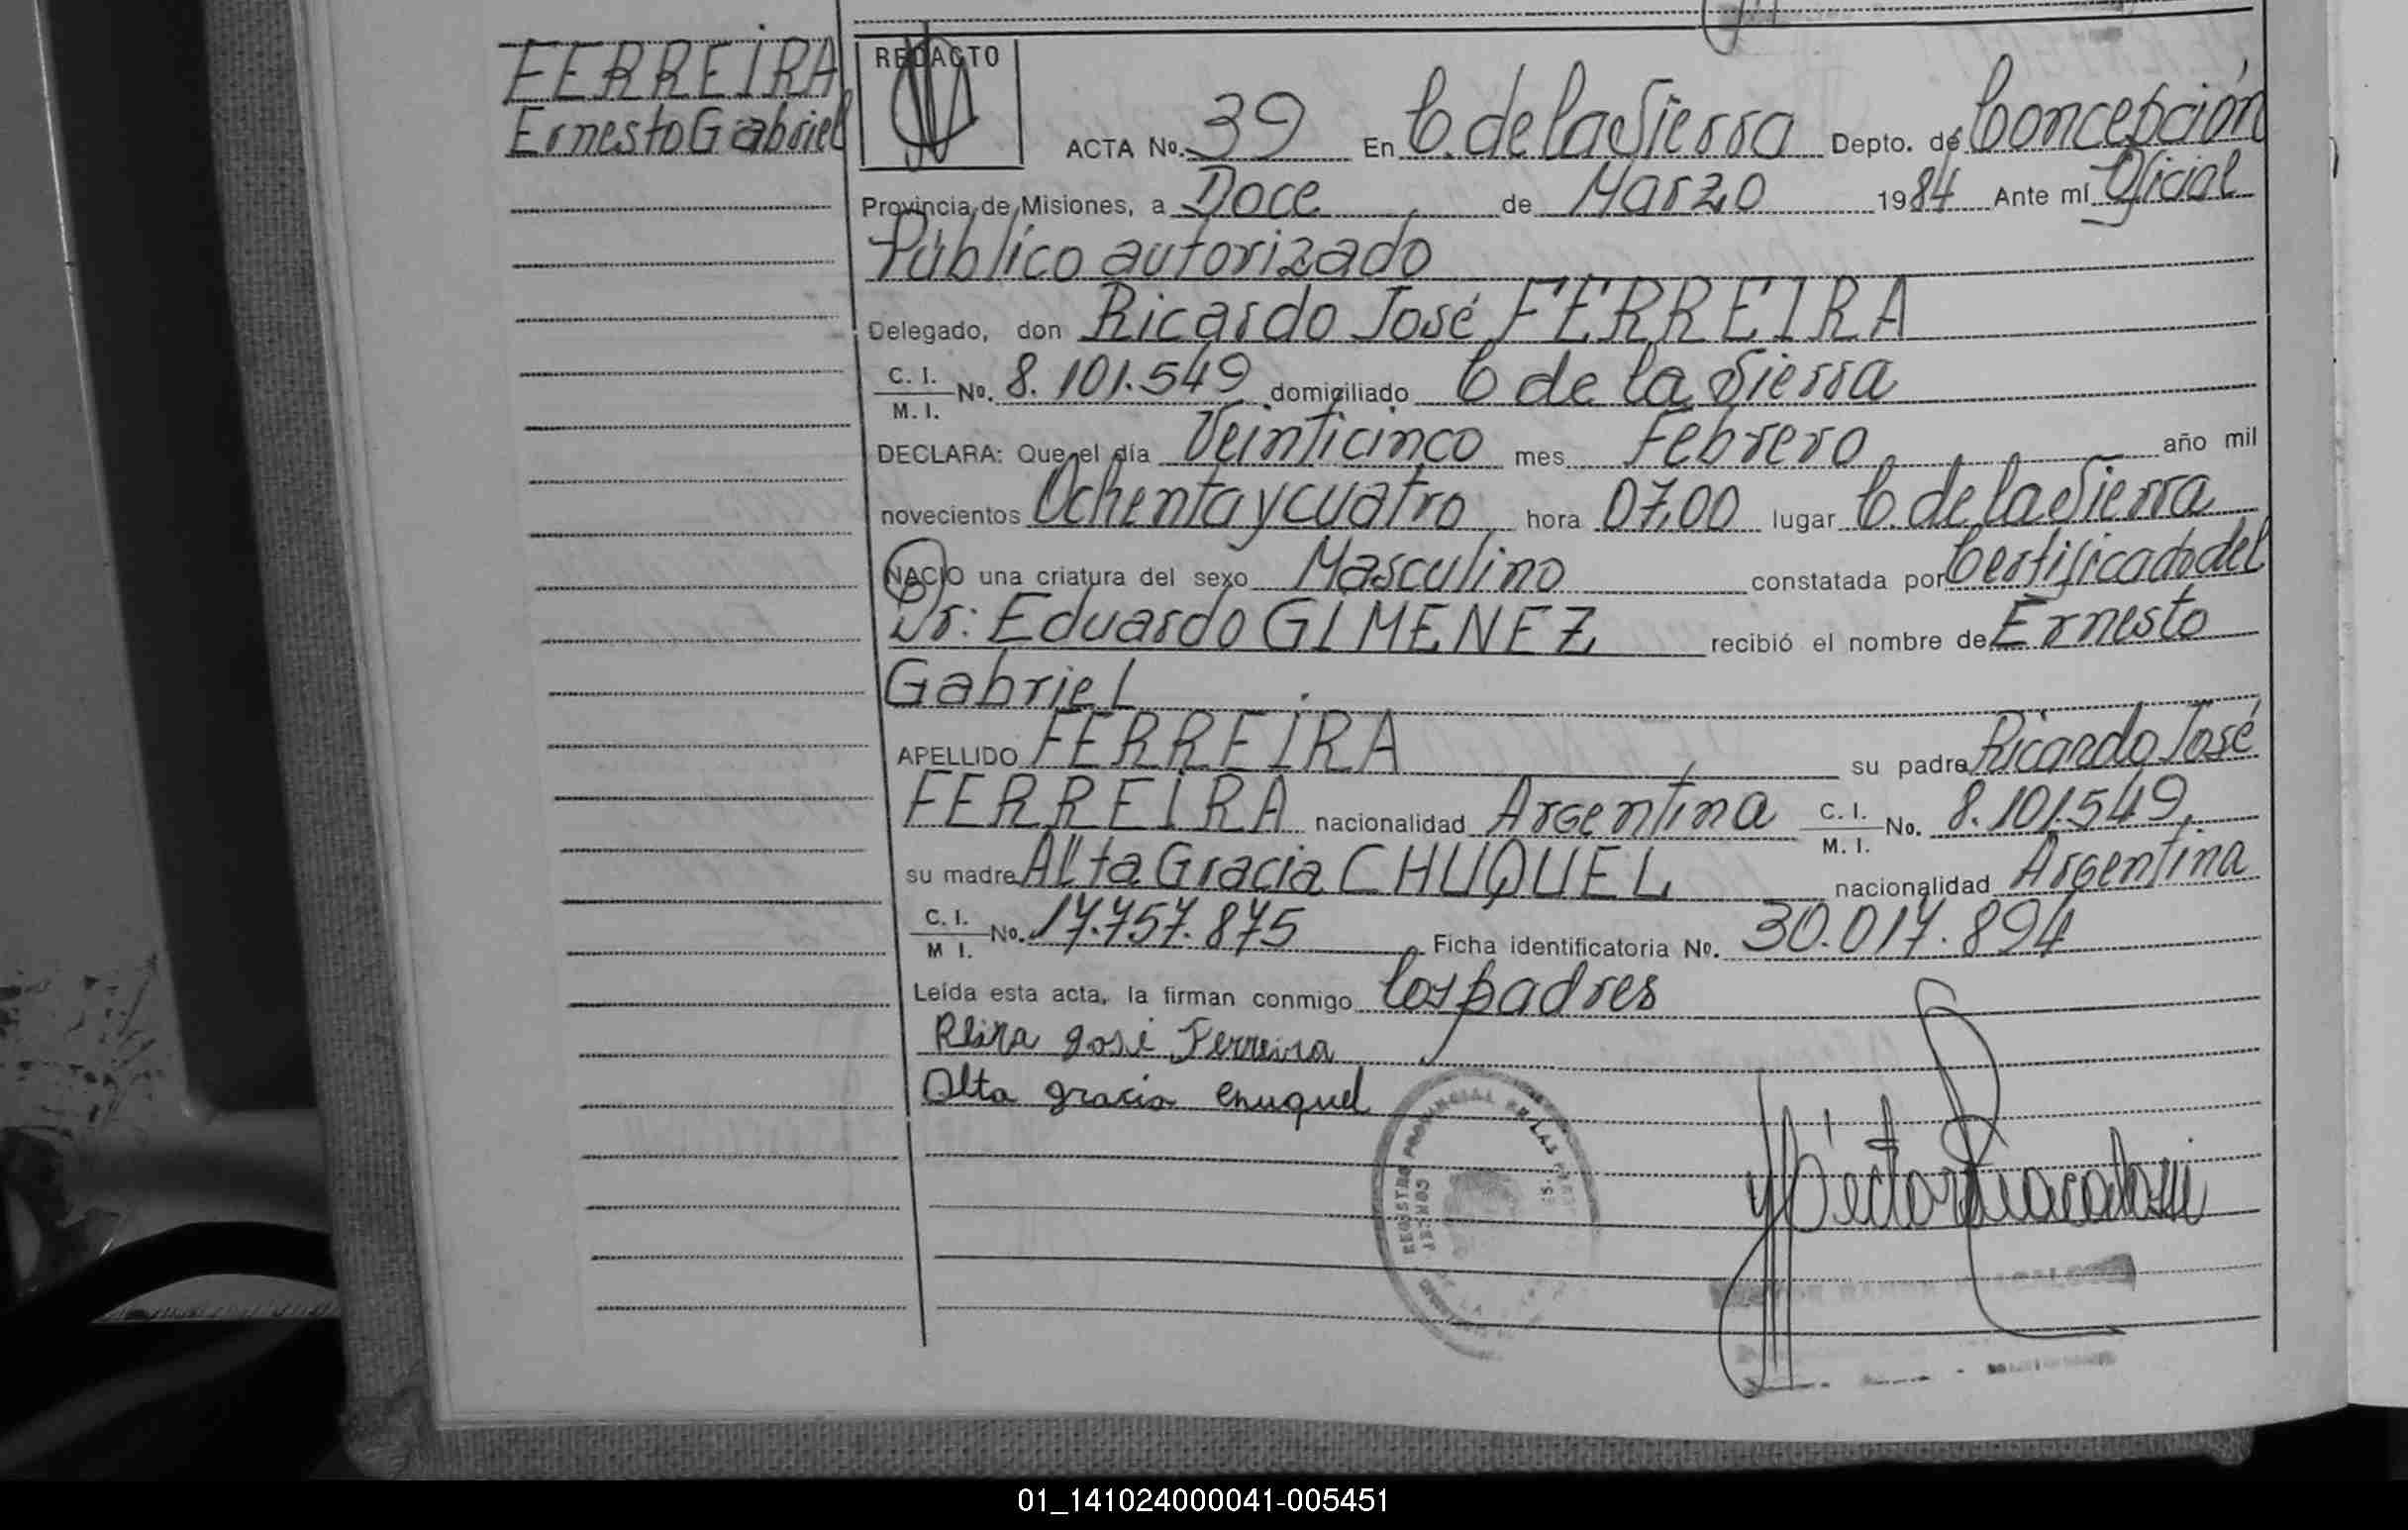 FERREIRA
Ernesto Gabriel
REDACTO
ACTA No. 39 En C. de la Sierra Depto. de Concepción
Provincia de Misiones, a Doce de Marzo 1984 Ante mí Oficial
Público autorizado
Delegado, don Ricardo José FERREIRA
C. I. / M. I. No. 8.101.549 domiciliado C de la Sierra
DECLARA: Que el día Veinticinco mes Febrero año mil
novecientos Ochenta y cuatro hora 07,00 lugar C. de la Sierra
NACIO una criatura del sexo Masculino constatada por Certificado del
Dr: Eduardo GIMENEZ recibió el nombre de Ernesto
Gabriel
APELLIDO FERREIRA su padre Ricardo José
FERREIRA nacionalidad Argentina C. I. / M. I. No. 8.101.549,
su madre Alta Gracia CHUQUEL nacionalidad Argentina
C. I. / M I. No. 17.757.875 Ficha identificatoria No. 30.017.894
Leída esta acta, la firman conmigo los padres
José Ferreira
Alta gracia chuquel
REGISTRO PROVINCIAL DE LAS
01_141024000041-005451